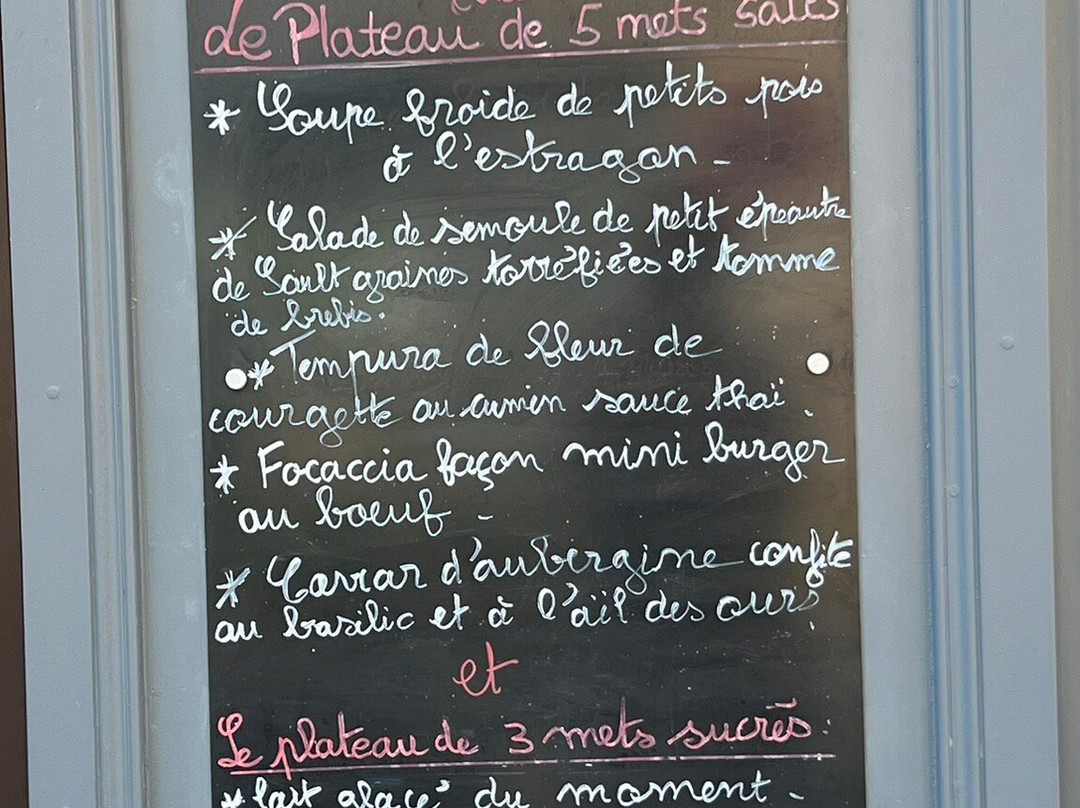 de Plateau de 5 mets salés
* Soupe froide de petits pois
à l'estragon -
* Salade de semoule de petit épeautre
de Sault graines torréfiées et tomme
de brebis.
* Tempura de fleur de
courgette au cumin sauce thaï.
* Focaccia façon mini burger
au boeuf -
* Caviar d'aubergine confite
au basilic et à l'aïl des ours
et
Le plateau de 3 mets sucrés :
* lait glacé du moment -